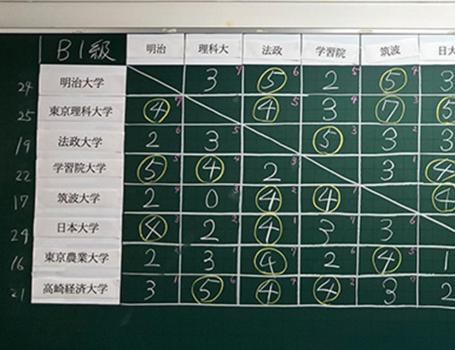 B1級 明治 理科大 法政 学習院 筑波 日大
24 明治大学 3 5 2 5 3
25 東京理科大学 4 4 3 7 5
19 法政大学 2 3 5 3 2
22 学習院大学 5 4 2 3
17 筑波大学 2 0 4 4
24 日本大学 2 4 3 3
16 東京農業大学 2 3 4 2 4 1
21 高崎経済大学 3 5 4 4 3 2